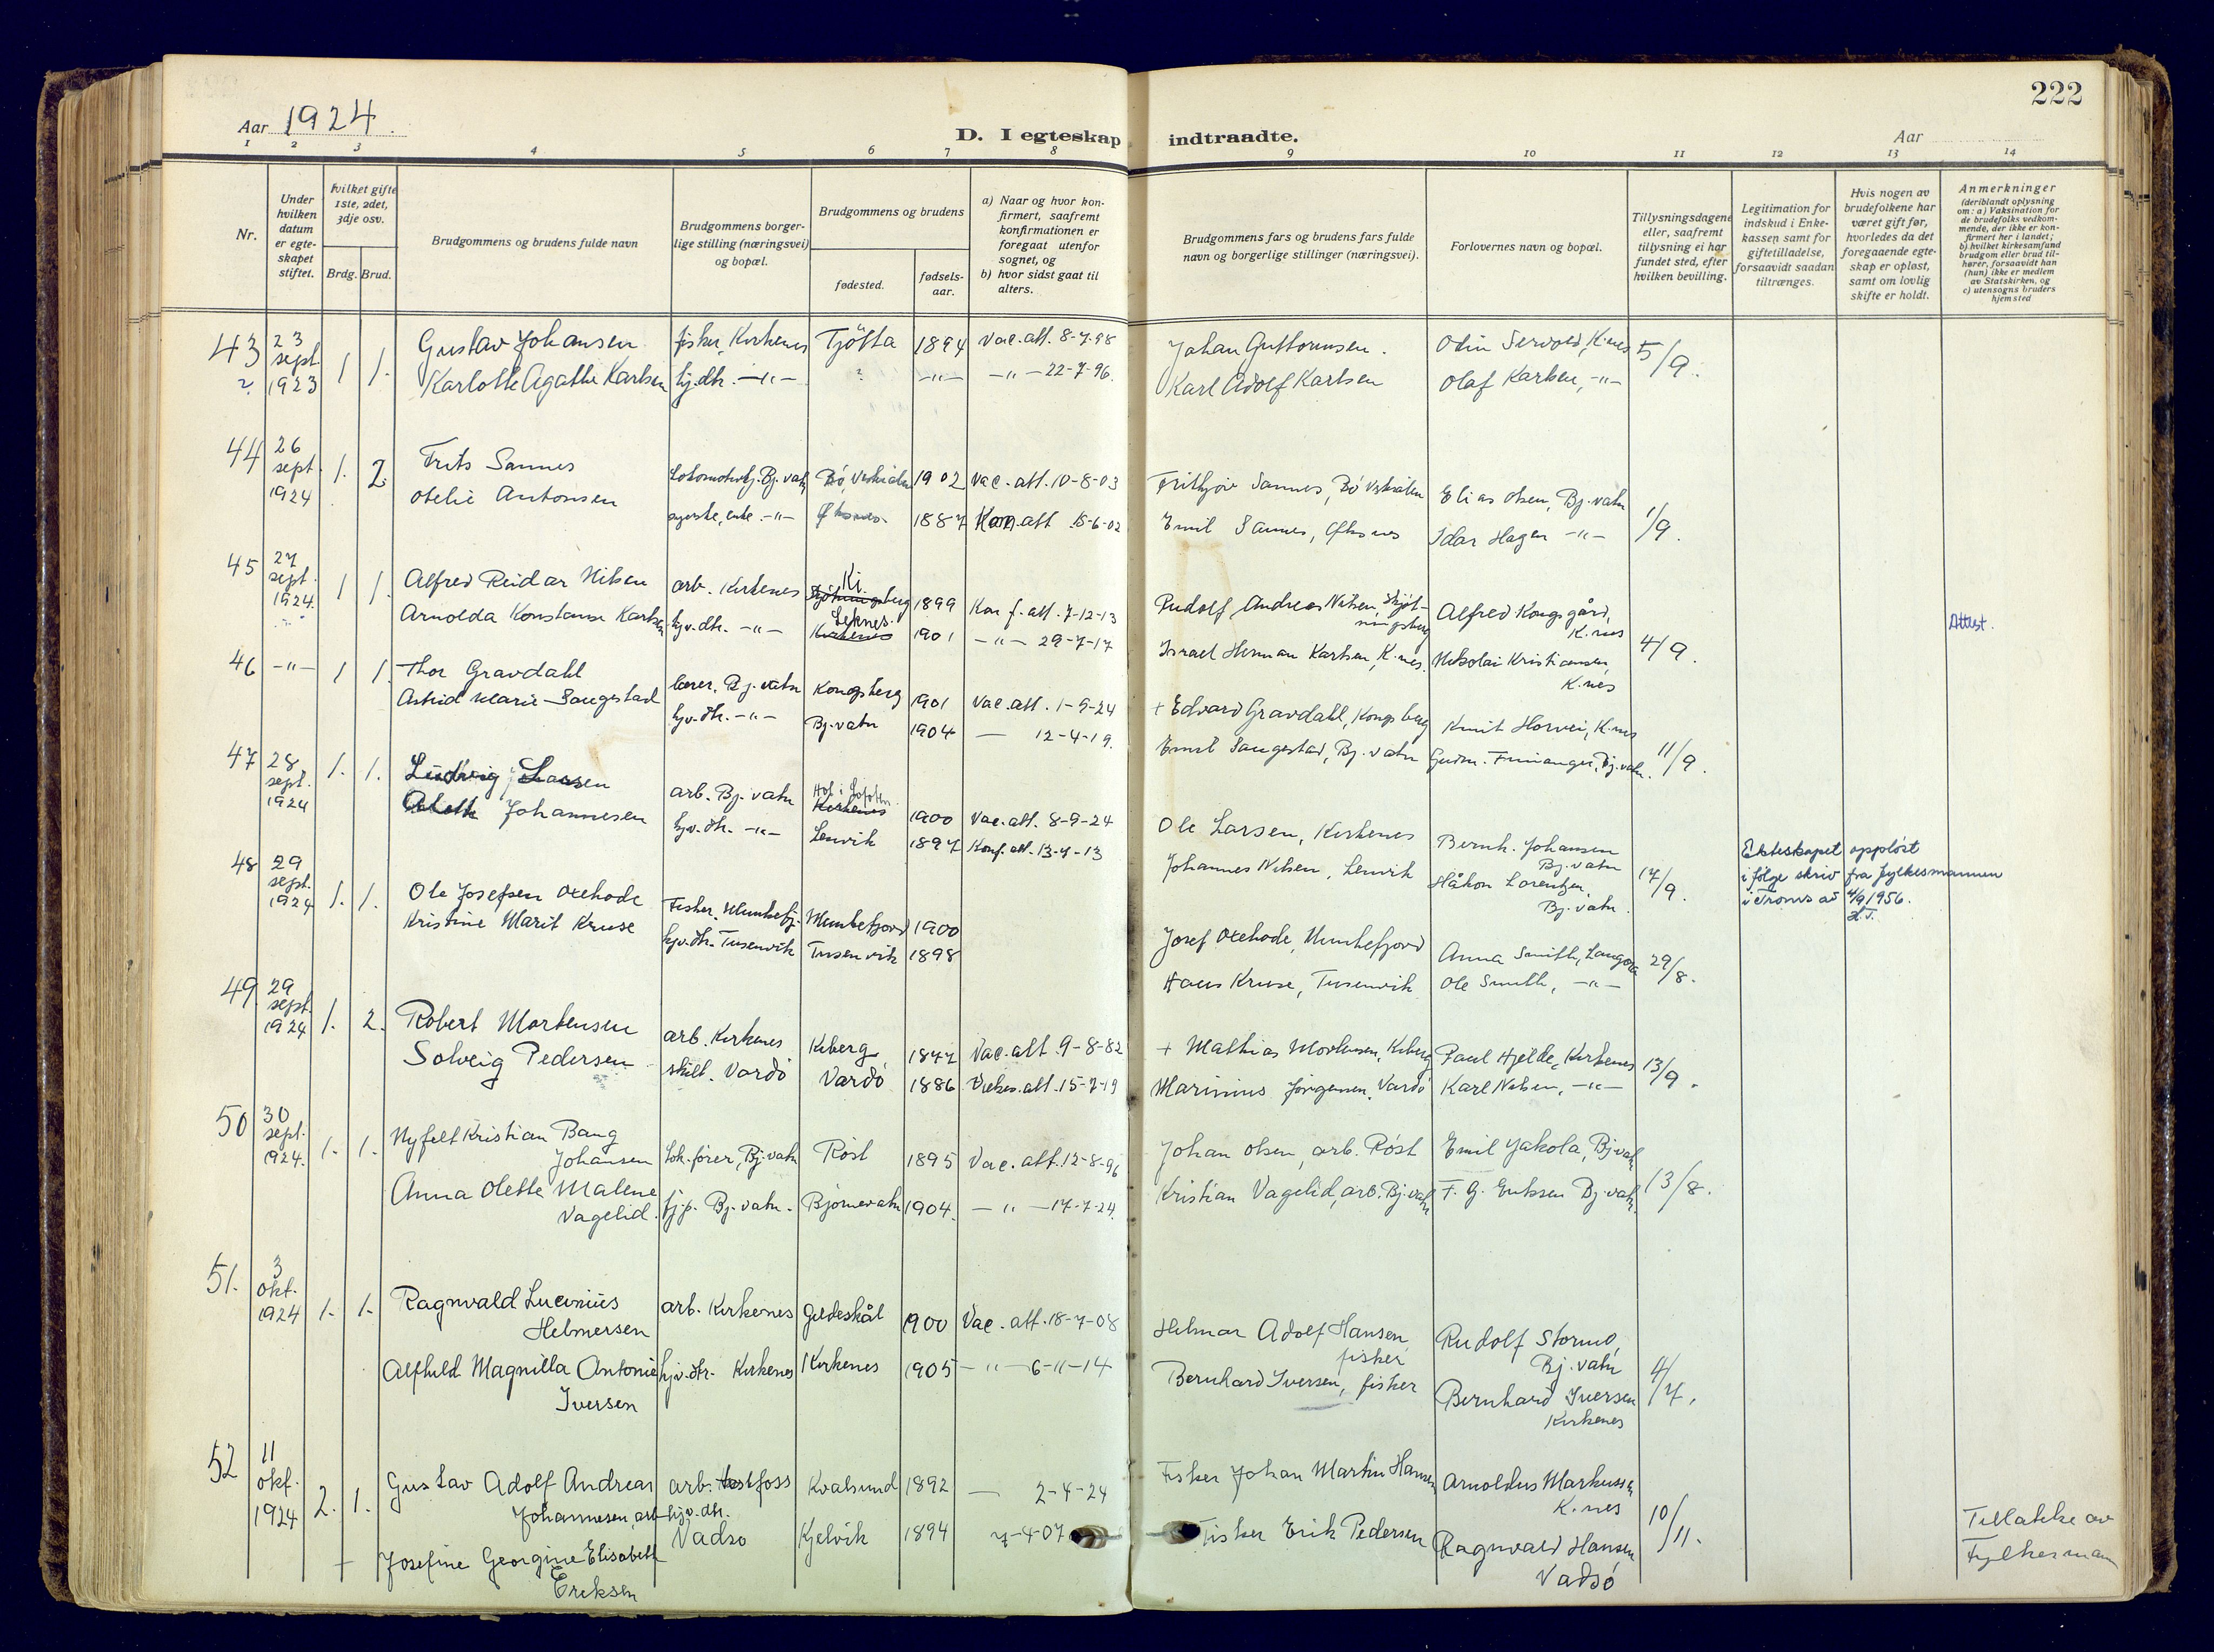 Aar 1924.
D. I egteskap indtraadte.
Aar
222
1 2 3 4 5 6 7 8 9 10 11 12 13 14
Nr.
Under hvilken datum er egteskapet stiftet.
hvilket gifte 1ste, 2det, 3dje osv.
Brdg. Brud.
Brudgommens og brudens fulde navn
Brudgommens borgerlige stilling (næringsvei) og bopæl.
Brudgommens og brudens
fødested.
fødselsaar.
a) Naar og hvor konfirmert, saafremt konfirmationen er foregaat utenfor sognet, og
b) hvor sidst gaat til alters.
Brudgommens fars og brudens fars fulde navn og borgerlige stillinger (næringsvei).
Forlovernes navn og bopæl.
Tillysningsdagene eller, saafremt tillysning ei har fundet sted, efter hvilken bevilling.
Legitimation for indskud i Enkekassen samt for giftetilladelse, forsaavidt saadan tiltrænges.
Hvis nogen av brudefolkene har været gift før, hvorledes da det foregaaende egteskap er opløst, samt om lovlig skifte er holdt.
Anmerkninger (deriblandt oplysning om: a) Vaksination for de brudefolks vedkommende, der ikke er konfirmert her i landet; b) hvilket kirkesamfund brudgom eller brud tilhører, forsaavidt han (hun) ikke er medlem av Statskirken, og c) utensogns bruders hjemsted
43 23 sept 1923 1 1. Gustav Johansen fisker, Kirkenes Tjötta 1894 Vac. att. 8-7-98 Johan Guttormsen. Odin K.nes 5/9.
? Karlotte Agathe Karlsen hj.dtr. -"- ? -"- -"- 22-7-96. Karl Adolf Karlsen Olaf Karlsen, -"-
44 26 sept. 1924 1. 2. Frits Sannes Bj.vatn Bö, 1902 Vac. att. 10-8-03 Frithjov Sannes, Bö Elias Olsen, Bj.vatn 1/9.
Otelie Antonsen syerske, enke. -"- 1887 Kon. att 15-6-02 Emil Sannes, Idar Hagen -"-
45 27 sept. 1924. 1 1. Alfred Reidar Nilsen arb. Kirkenes Ki. 1899 Kon f. att. 7-12-13 Rudolf Andreas Nilsen, Skjötningsberg Alfred Kongsgård, K.nes 4/9. Attest.
Arnolda Konstanse Karlsen hjv.dtr. -"- Leknes. Kirkenes 1901 -"- 29-7-17 Israel Herman Karlsen, K.nes. Nikolai Kristiansen, K.nes
46 -"- 1 1. Thor Gravdahl lærer, Bj.vatn Kongsberg 1901 Vac. att. 1-9-24 + Edvard Gravdahl, Kongsberg Knut Horvei, K.nes 11/9.
Astrid Marie Saugestad hjv.dtr. -"- Bj.vatn 1904 — 12-4-19. Emil Saugestad, Bj.vatn Gudm. Bj.vatn.
47 28 sept. 1924 1. 1. Ludvig Larsen arb. Bj.vatn Hol i Lofoten. Kirkenes 1900 Vac. att. 8-9-24 Ole Larsen, Kirkenes Bernh. Johansen Bj.vatn 17/9. Ekteskapet oppløst
Johannesen hjv.dtr. -"- Lenvik 1897 Konf. att. 13-7-13 Johannes Nilsen, Lenvik Håkon Lorentzen, Bj.vatn. i følge skriv fra fylkesmannen
i Troms av 4/9 1956.
48 29 sept. 1924 1. 1. Ole Josefsen Oxehode Fisker, Munkefj. Munkefjord 1900 Josef Oxehode, Munkefjord Anna Smith, Langøra 29/8.
Kristine Marit Kruse hjv.dtr. Tusenvik Tusenvik 1898 Hans Kruse, Tusenvik Ole Smith, -"-
49. 29 sept. 1924 1. 2. Robert Mortensen arb. Kirkenes Kiberg 1877 Vac. att. 9-8-82 + Mathias Mortensen, Kiberg Paul Hjelde, Kirkenes 13/9.
Solveig Pedersen skilt. Vardö Vardö 1886 att. 15-7-19 Marinius Jörgensen, Vardö Karl Nilsen, -"-
50 30 sept. 1924. 1. 1. Nyfelt Kristian Bang Johansen lok.förer, Bj.vatn Röst 1895 Vac. att. 12-8-96 Johan Olsen, arb. Röst Emil Jakola, Bj.vatn 13/8.
Anna Olette Malene Vagelid. Bj.vatn. Björnevatn 1904. -"- 17-7-24. Kristian Vagelid, arb. Bj.vatn F. G. Eriksen Bj.vatn.
51. 3 okt. 1924 1. 1. Ragnvald Lucinius Helmersen arb. Kirkenes Gildeskål 1900 Vac. att. 18-7-08 Helmar Adolf Hansen, fisker Rudolf Stormo, Bj.vatn 4/7.
Alfhild Magnilla Antonie Iversen hjv.dtr. Kirkenes Kirkenes 1905 -"- 6-11-14 Bernhard Iversen, fisker Bernhard Iversen Kirkenes
52 11 okt. 1924 2. 1. Gustav Adolf Andreas Johannesen, arb arb. foss Kvalsund 1892 — 2-4-24 Fisker Johan Martin Hansen Arnoldus Markussen K.nes 10/11. Tillatelse av
+ Josefine Georgine Elisabeth Eriksen hjv.dtr. Vadsö Kjelvik 1894 7-4-07 Fisker Erik Pedersen Ragnvald Hansen Vadsö Fylkesmann